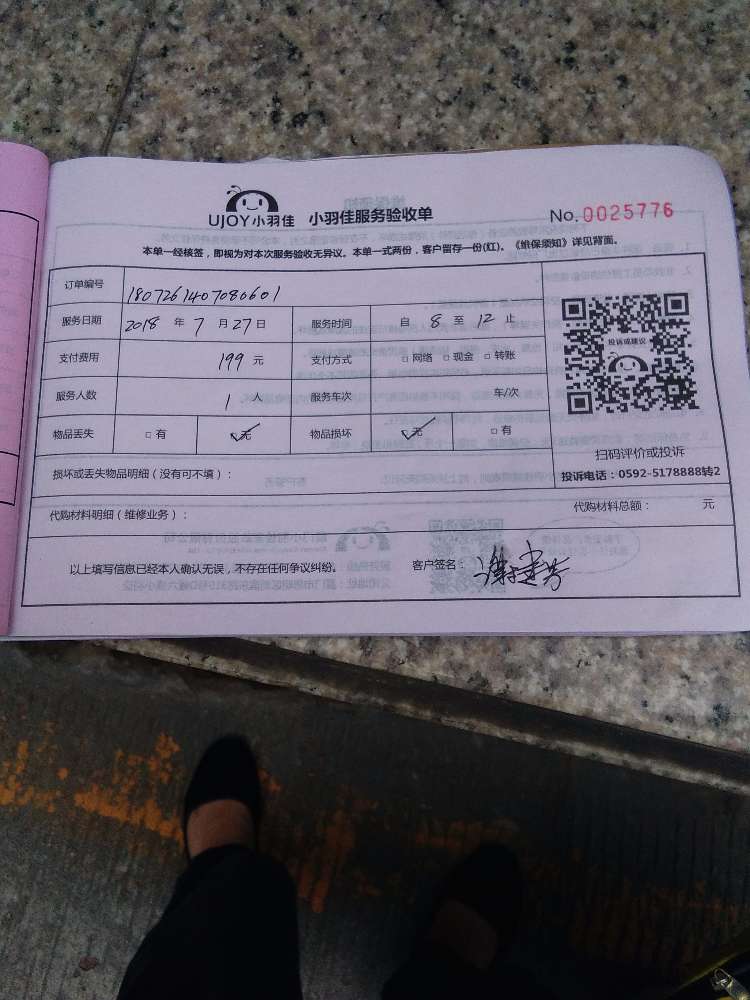 UJOY小羽佳 小羽佳服务验收单 No.0025776
本单一经核签，即视为对本次服务验收无异议。本单一式两份，客户留存一份(红)。《维保须知》详见背面。
订单编号 1807261407080601
服务日期 2018 年 7 月 27 日 服务时间 自 8 至 12 止
支付费用 199 元 支付方式 □ 网络 □ 现金 □ 转账
服务人数 1 人 服务车次 车/次
物品丢失 □ 有 ☑ 无 物品损坏 ☑ 无 □ 有
投诉或建议
扫码评价或投诉
投诉电话：0592-5178888转2
损坏或丢失物品明细（没有可不填）：
代购材料明细（维修业务）： 代购材料总额： 元
以上填写信息已经本人确认无误，不存在任何争议纠纷。 客户签名：